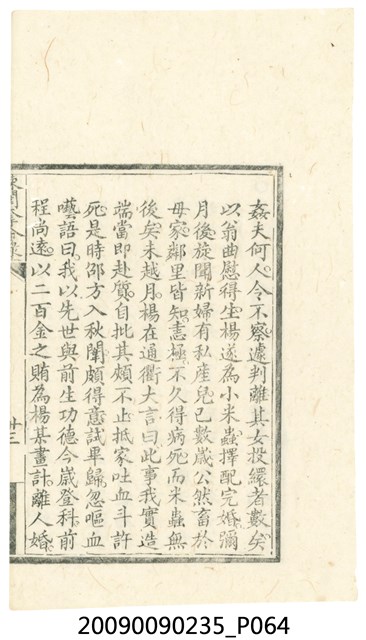 姦夫何人令不察遽判離其女投繯者數矣
以翁曲慰得生楊遂為小米蟲擇配完婚彌
月後旋聞新婦有私產兒已數歲公然畜於
母家鄰里皆知恚極不久得病死而米蟲無
後矣未越月楊在通衢大言曰此事我實造
端當即赴質自批其頰不止抵家吐血斗許
死是時邵方入秋闈頗得意試畢歸忽嘔血
囈語曰我以先世與前生功德今歲登科前
程尚遠以二百金之賄為楊某畫計離人婚
廿三
20090090235_P064